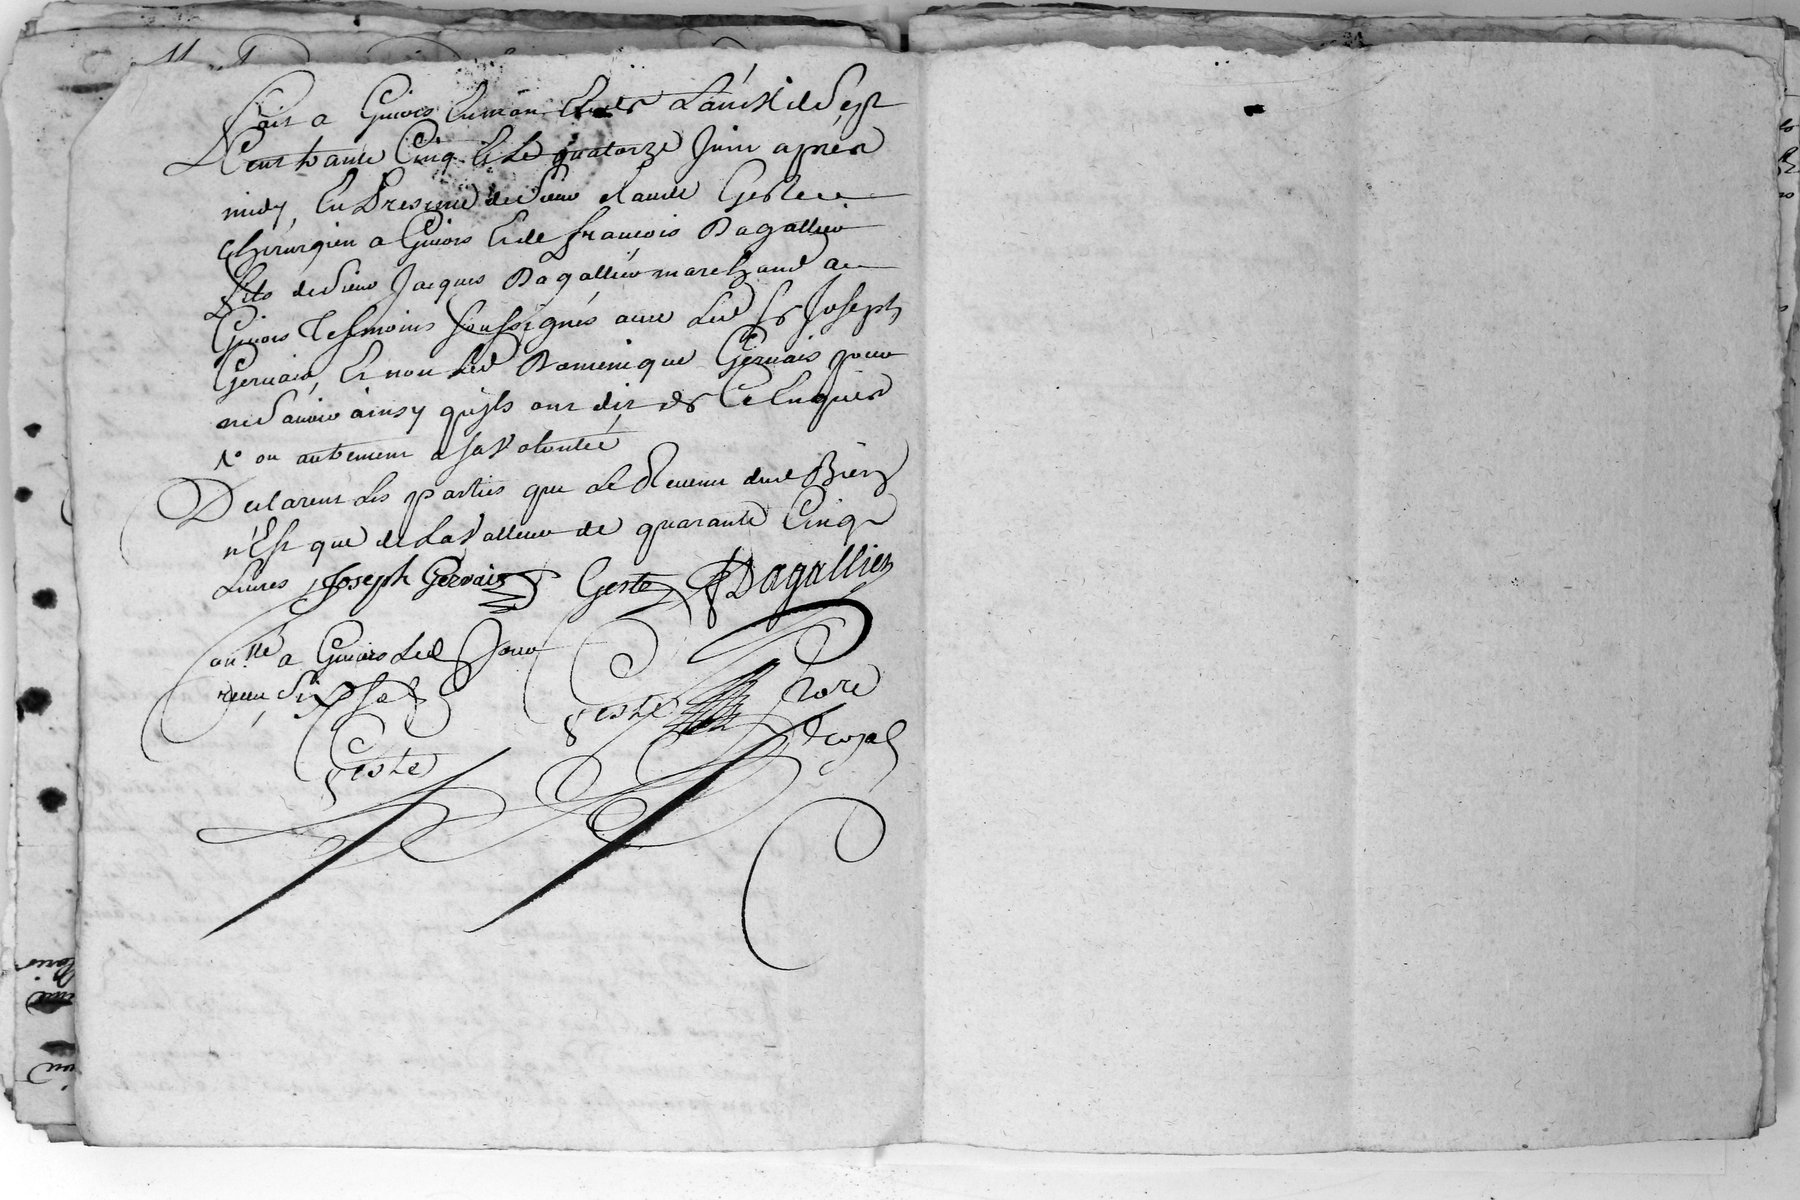 Fait a Givors En mon Etude Lan Mil Sept
Cent trante Cinq Et Le quatorze Juin apres
midy, En Presence de Sieur Claude Geste
Chirurgien a Givors Et de francois Dagallier
fils de Sieur Jacques Dagallier marchand au
Givors Tesmoins soussignés avec Led Sr Joseph
Gervais, Et non Led Dominique Gervais pour
ne Savoir ainsy quils ont dit de Ce Enquis
ou autrement a sa Volonté
Declarent Les parties que Le Revenu dud Bien
n'Est que de La Valleur de quarante Cinq
Livres Joseph Gervais Geste Dagallier
a Givors Led Jour
receu Six sols
Geste Geste Nore
Royal